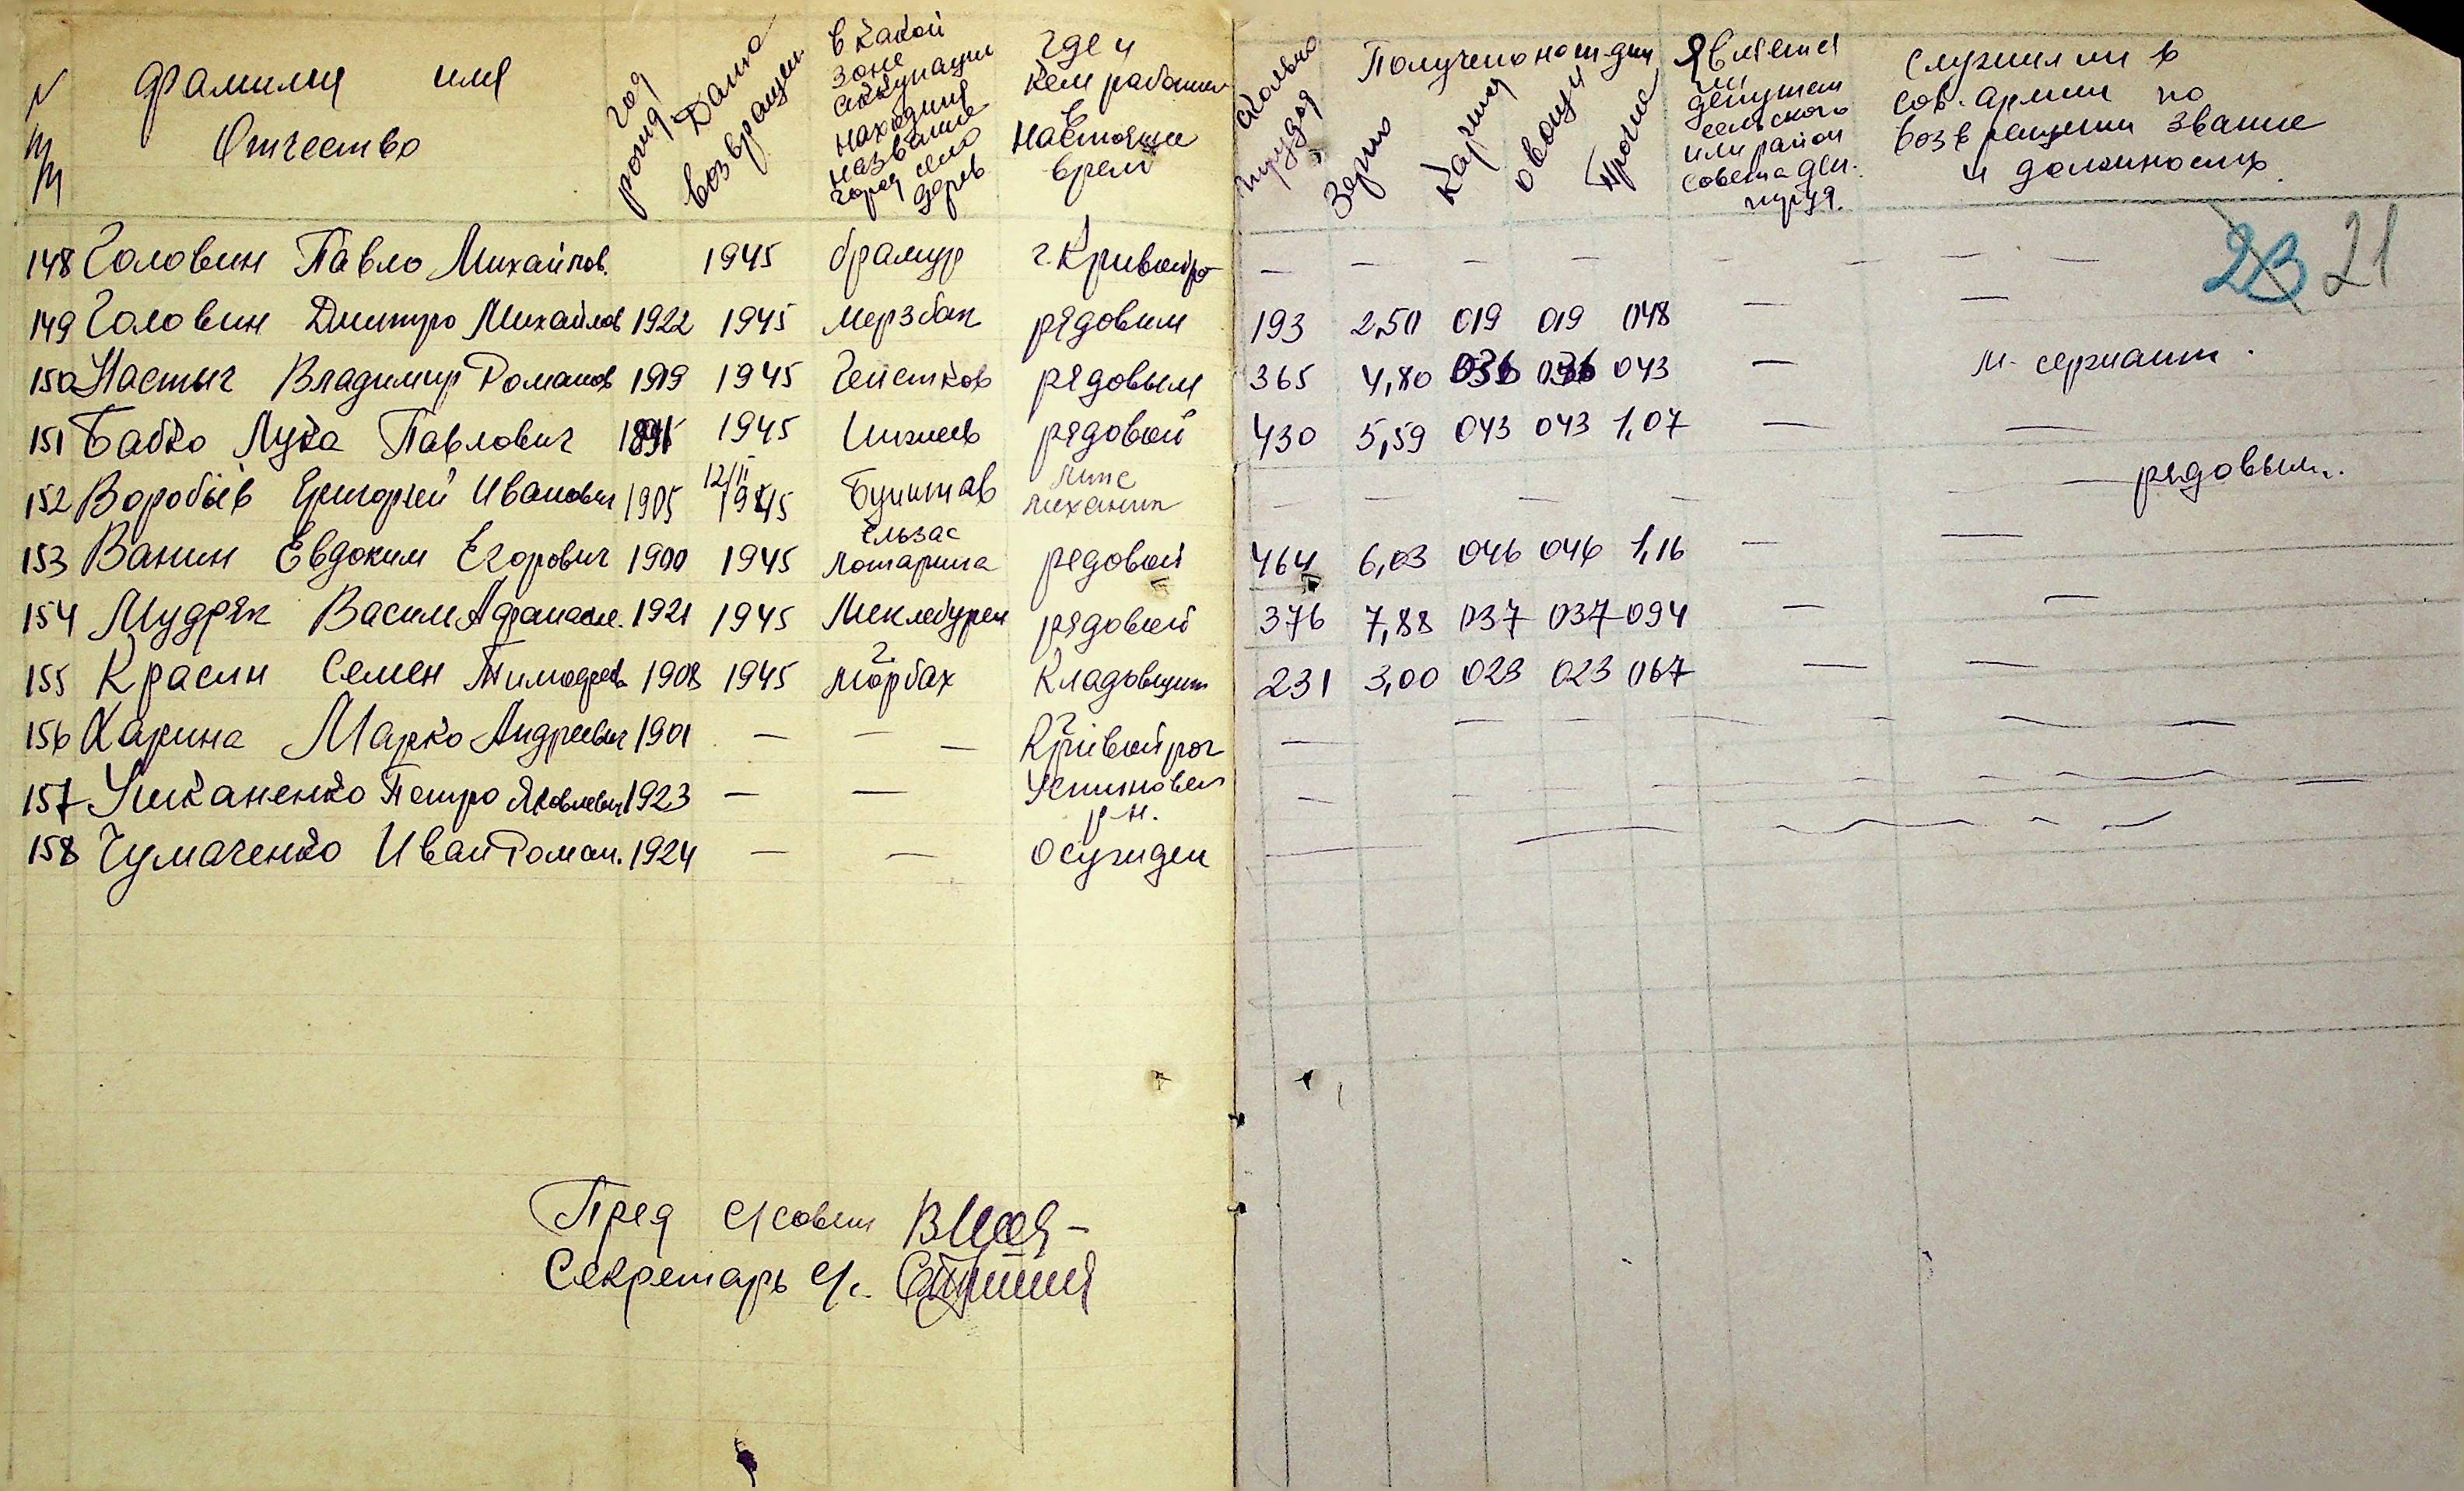 N п/п Фамилия имя Отчество год рожд Дата возвращен в какой зоне оккупации находился название город село дерев Где и кем работает в настояще время Сколько трудод Получено на т-дни Зерно Картоф овощи Прочие Является ли депутатом сельского или район совета деп. труд. Служил ли в сов. армии по возвращении звание и должность.
23 21
148 Головин Павло Михайлов. 1945 г. Кривой рог — — — — — — — —
149 Головин Дмитро Михайлов 1922 1945 Мерзбах рядовым 193 2,50 019 019 048 — —
150 Настыч Владимир Романов 1919 1945 рядовым 365 4,80 036 036 043 — м. сержант.
151 Бабко Лука Павлович 1945 рядовой 430 5,59 043 043 1,07 — —
152 Воробьёв Григорий Иванович 1905 12/II 1945 механик — — — — — рядовым.
153 Ванин Евдоким Егорович 1900 1945 Ельзас Лотарингa рядовой 464 6,03 046 046 1,16 — —
154 Мудряк Васил Афанасье. 1921 1945 Меклебурген рядовой 376 7,88 037 037 094 — —
155 Красин Семен Тимофеев 1908 1945 г. Морбах Кладовщик 231 3,00 023 023 067 — —
156 Харина Марко Андреевич 1901 — — — г. Кривой рог — — — — — — —
157 Уиканенко Петро Яковлевич 1923 — — Устиновск р-н. — — — — — —
158 Чумаченко Иван Роман. 1924 — — Осужден — — — — —
Пред с/совета
Секретарь с/с.